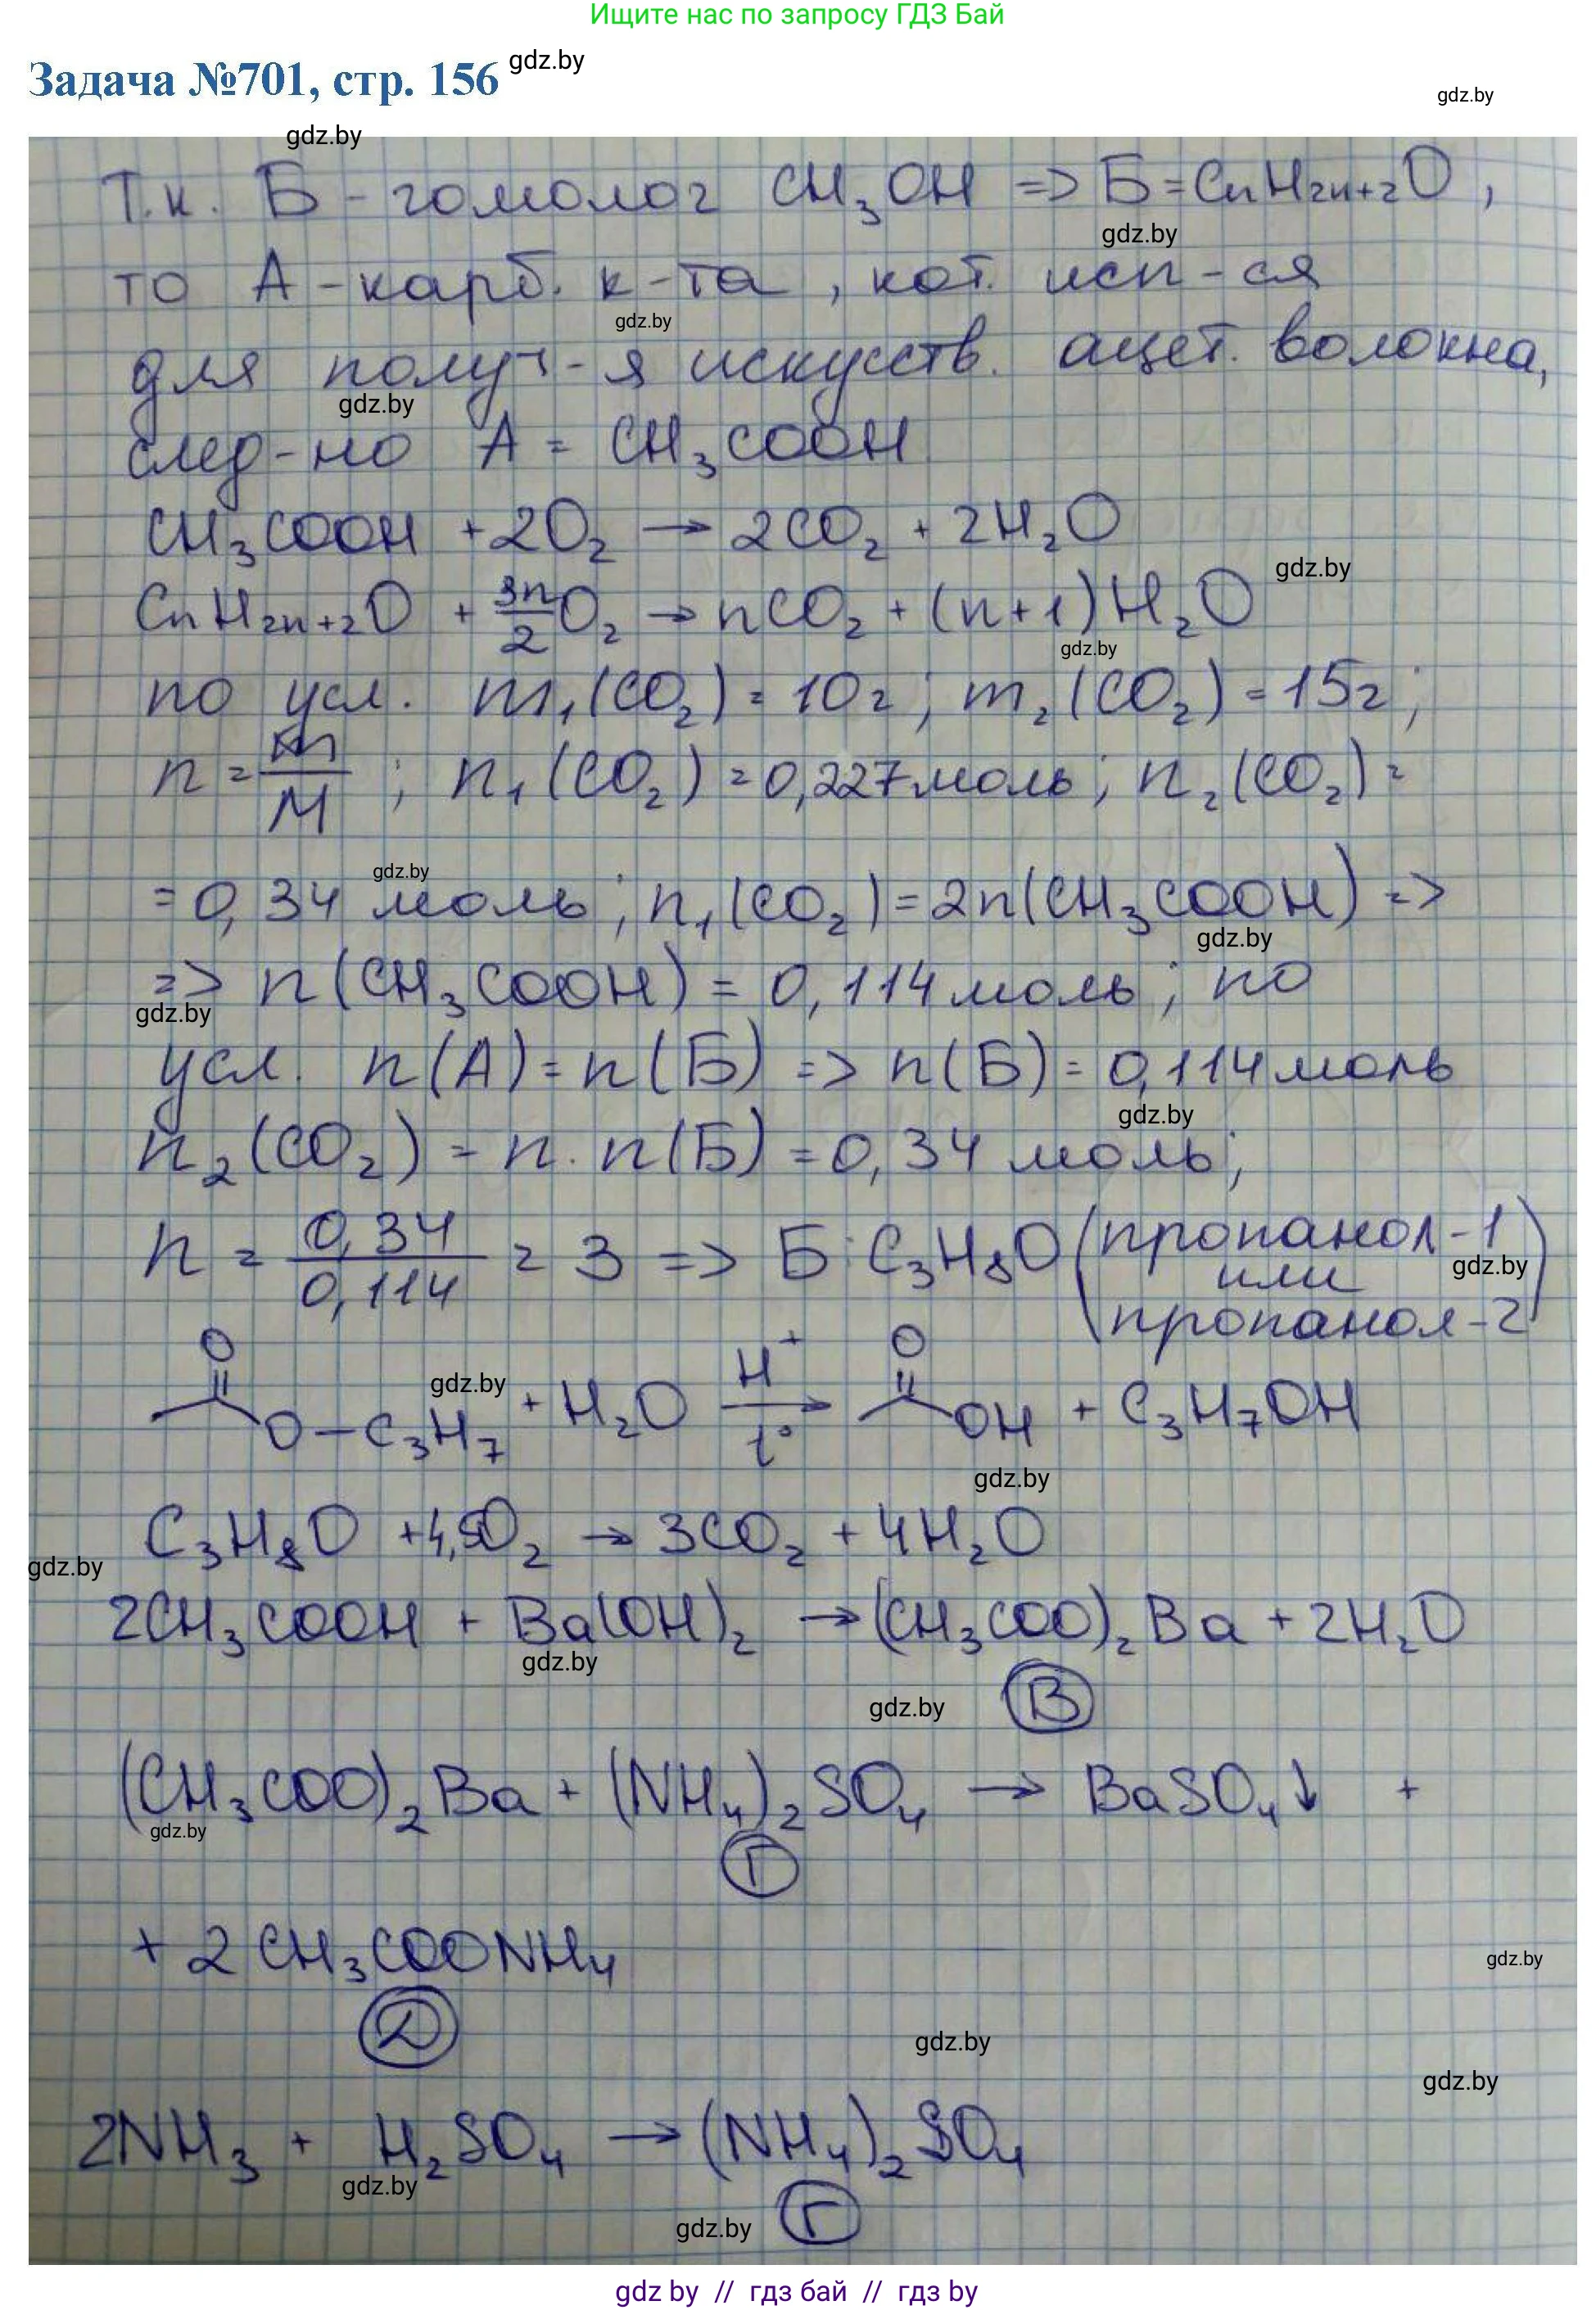 Ищите нас по запросу ГДЗ Бай
Задача №701, стр. 156 gdz.by
gdz.by
gdz.by
Т.к. Б - гомолог CH₃OH => Б = CnH2n+2O,
gdz.by
то А - карб. к-та, кот. исп-ся
gdz.by
для получ-я искусств. ацет. волокна,
gdz.by
след-но А = CH₃COOH
CH₃COOH + 2O₂ → 2CO₂ + 2H₂O
gdz.by
CnH2n+2O + 3n/2 O₂ → nCO₂ + (n+1)H₂O
gdz.by
по усл. m₁(CO₂) = 10г; m₂(CO₂) = 15г;
n = m/M; n₁(CO₂) = 0,227 моль; n₂(CO₂) =
gdz.by
= 0,34 моль; n₁(CO₂) = 2n(CH₃COOH) =>
gdz.by
=> n(CH₃COOH) = 0,114 моль; по
gdz.by
усл. n(А) = n(Б) => n(Б) = 0,114 моль
gdz.by
n₂(CO₂) = n · n(Б) = 0,34 моль;
n = 0,34/0,114 = 3 => Б: C₃H₈O (пропанол-1
или gdz.by
пропанол-2)
O H⁺ O
gdz.by
O-C₃H₇ + H₂O → t° OH + C₃H₇OH
gdz.by
C₃H₈O + 4,5O₂ → 3CO₂ + 4H₂O
gdz.by
2CH₃COOH + Ba(OH)₂ → (CH₃COO)₂Ba + 2H₂O
gdz.by
gdz.by В
(CH₃COO)₂Ba + (NH₄)₂SO₄ → BaSO₄↓ +
gdz.by
Г
+ 2CH₃COONH₄
gdz.by
Д
gdz.by
gdz.by
2NH₃ + H₂SO₄ → (NH₄)₂SO₄
gdz.by
gdz.by Г
gdz by // гдз бай // гдз by